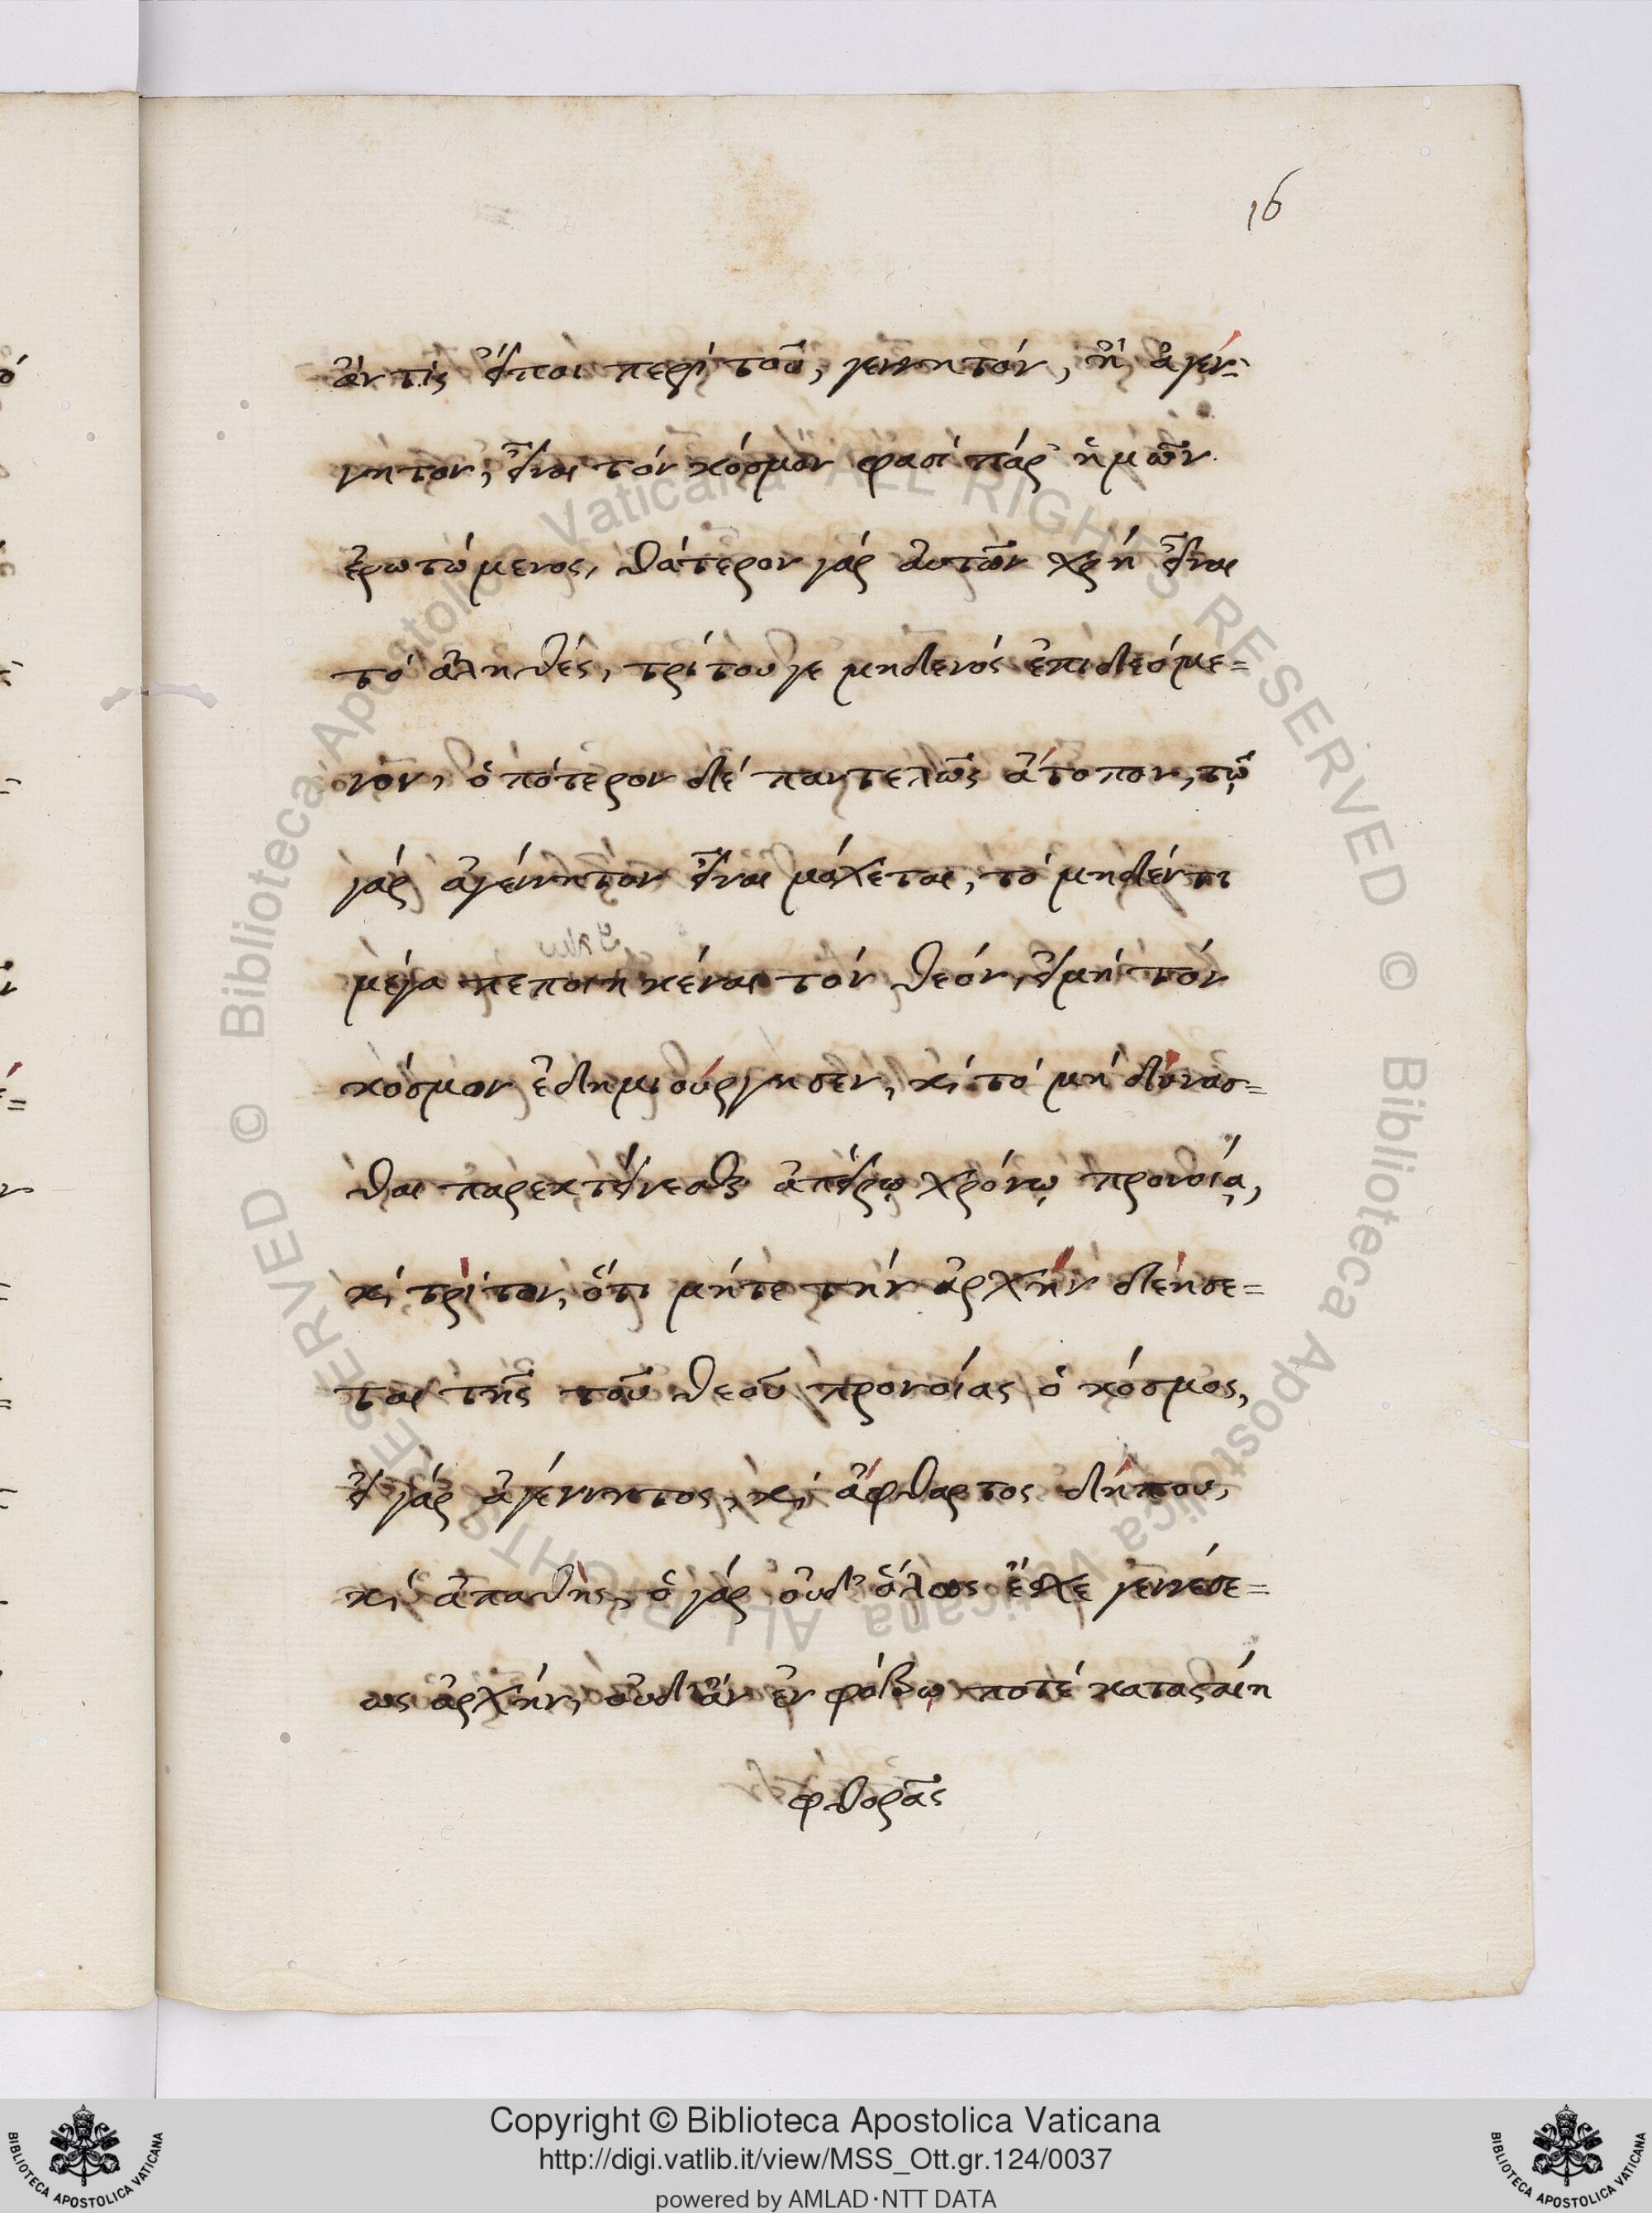 16
ἄν τις εἴποι περὶ τοῦ, γεννητόν, ἢ ἀγέν-
νητον, εἶναι τόν κόσμον φασί παρ' ἡμῶν
ἐρωτώμενος, θάτερον γάρ αὐτῶν χρή εἶναι
τό ἀληθές, τρίτου γε μηδενός ἐπιδεόμε=
νον, ὁπότερον δέ παντελῶς ἄτοπον, τῷ
γάρ ἀγέννητον εἶναι μάχεται, τό μηδέν τι
μέγα πεποιηκέναι τόν θεόν, εἰ μή τόν
κόσμον ἐδημιούργησεν, κ, τό μή δύνασ=
θαι παρεκτείνεσθαι ἀπείρῳ χρόνῳ προνοίᾳ,
κ, τρίτον, ὅτι μήτε τήν ἀρχήν δεήσε=
ται τῆς τοῦ θεοῦ προνοίας ὁ κόσμος,
εἰ γάρ ἀγέννητος, κ, ἄφθαρτος δήπου,
κ, ἀπαθής, ὁ γάρ οὐδ' ὅλως ἔσχε γενέσε=
ως ἀρχήν, οὐδ' ἄν ἐν φόβῳ ποτέ κατασταίη
φθορᾶς
Copyright © Biblioteca Apostolica Vaticana
http://digi.vatlib.it/view/MSS_Ott.gr.124/0037
powered by AMLAD·NTT DATA
BIBLIOTECA APOSTOLICA VATICANA
BIBLIOTECA APOSTOLICA VATICANA
© Biblioteca Apostolica Vaticana ALL RIGHTS RESERVED
© Biblioteca Apostolica Vaticana ALL RIGHTS RESERVED